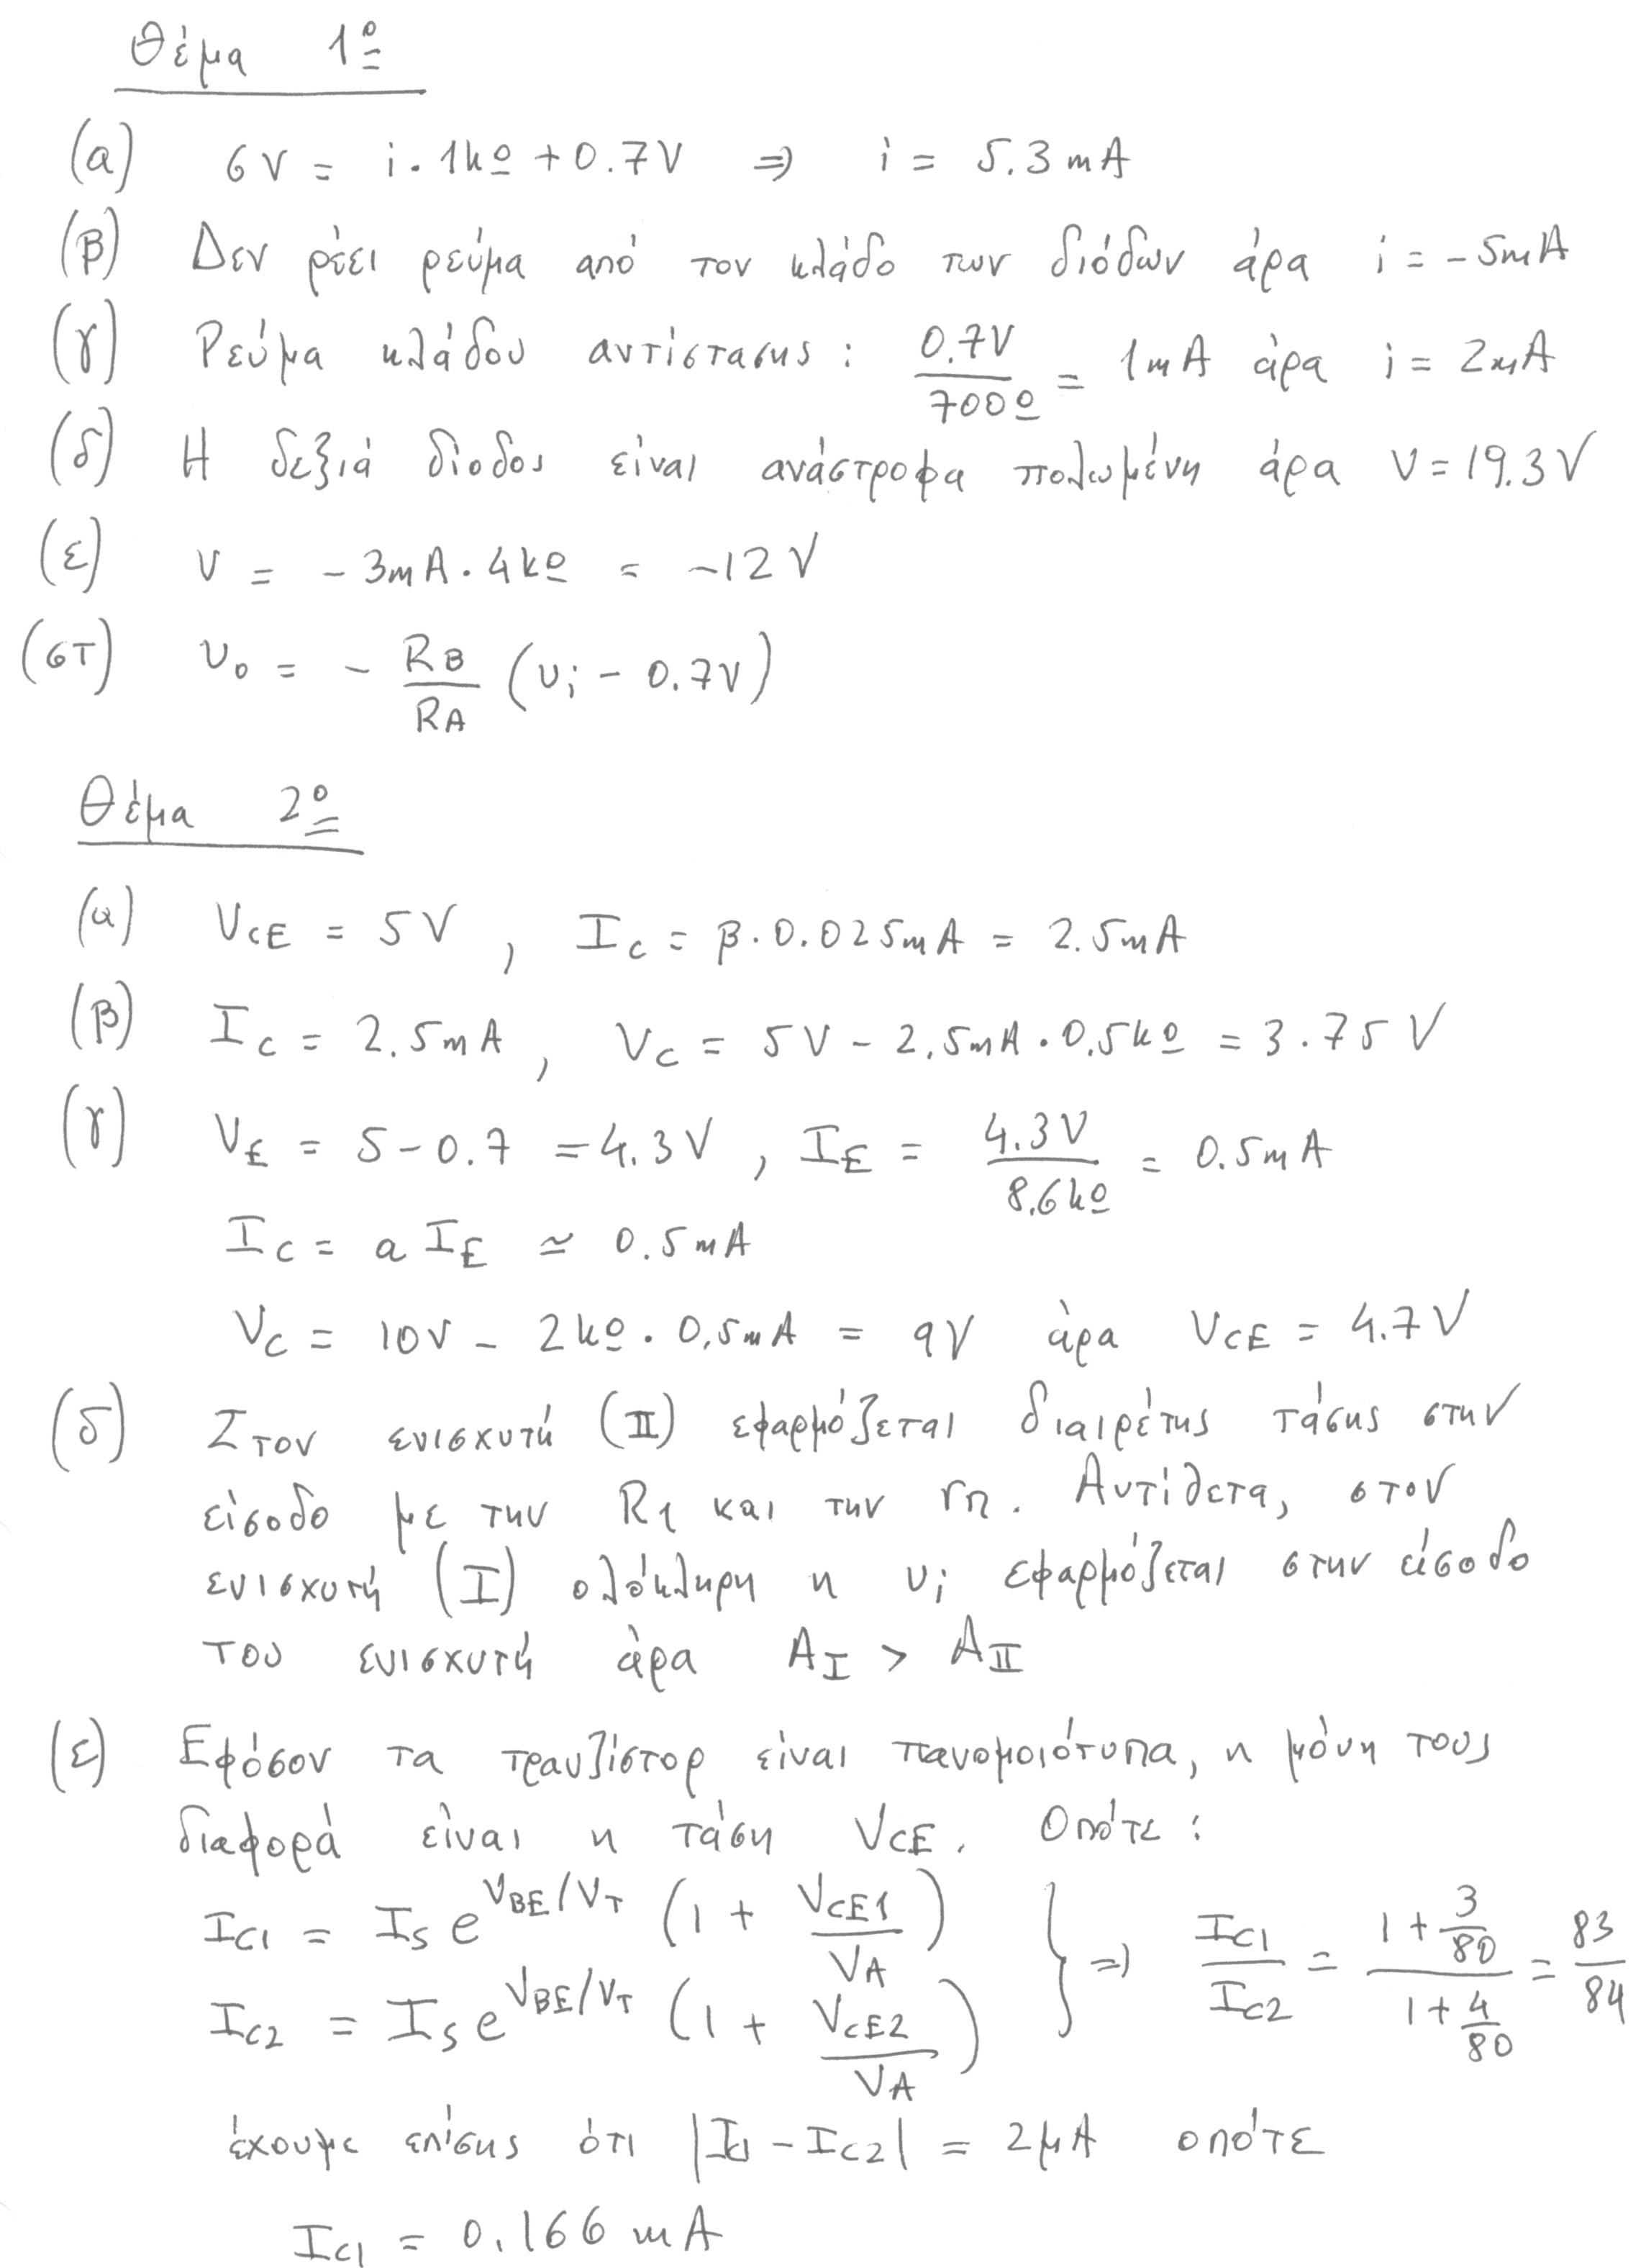 Θέμα 1º
(α) 6V = i · 1kΩ + 0.7V ⇒ i = 5.3mA
(β) Δεν ρέει ρεύμα από τον κλάδο των διόδων άρα i = -5mA
(γ) Ρεύμα κλάδου αντίστασης : 0.7V / 700Ω = 1mA άρα i = 2mA
(δ) Η δεξιά δίοδος είναι ανάστροφα πολωμένη άρα V = 19.3V
(ε) V = - 3mA · 4kΩ = -12V
(στ) υo = - RB / RA (υi - 0.7V)
Θέμα 2º
(α) VCE = 5V , IC = β · 0.025mA = 2.5mA
(β) IC = 2.5mA , VC = 5V - 2.5mA · 0.5kΩ = 3.75V
(γ) VE = 5 - 0.7 = 4.3V , IE = 4.3V / 8.6kΩ = 0.5mA
IC = α IE ≃ 0.5mA
VC = 10V - 2kΩ · 0.5mA = 9V άρα VCE = 4.7V
(δ) Στον ενισχυτή (II) εφαρμόζεται διαιρέτης τάσης στην
είσοδο με την R1 και την rπ. Αντίθετα, στον
ενισχυτή (I) ολόκληρη η υi εφαρμόζεται στην είσοδο
του ενισχυτή άρα AI > AII
(ε) Εφόσον τα τρανζίστορ είναι πανομοιότυπα, η μόνη τους
διαφορά είναι η τάση VCE. Οπότε :
IC1 = IS e^(VBE/VT) (1 + VCE1 / VA)
IC2 = IS e^(VBE/VT) (1 + VCE2 / VA) } ⇒ IC1 / IC2 = (1 + 3/80) / (1 + 4/80) = 83 / 84
έχουμε επίσης ότι |IC1 - IC2| = 2μA οπότε
IC1 = 0.166 mA